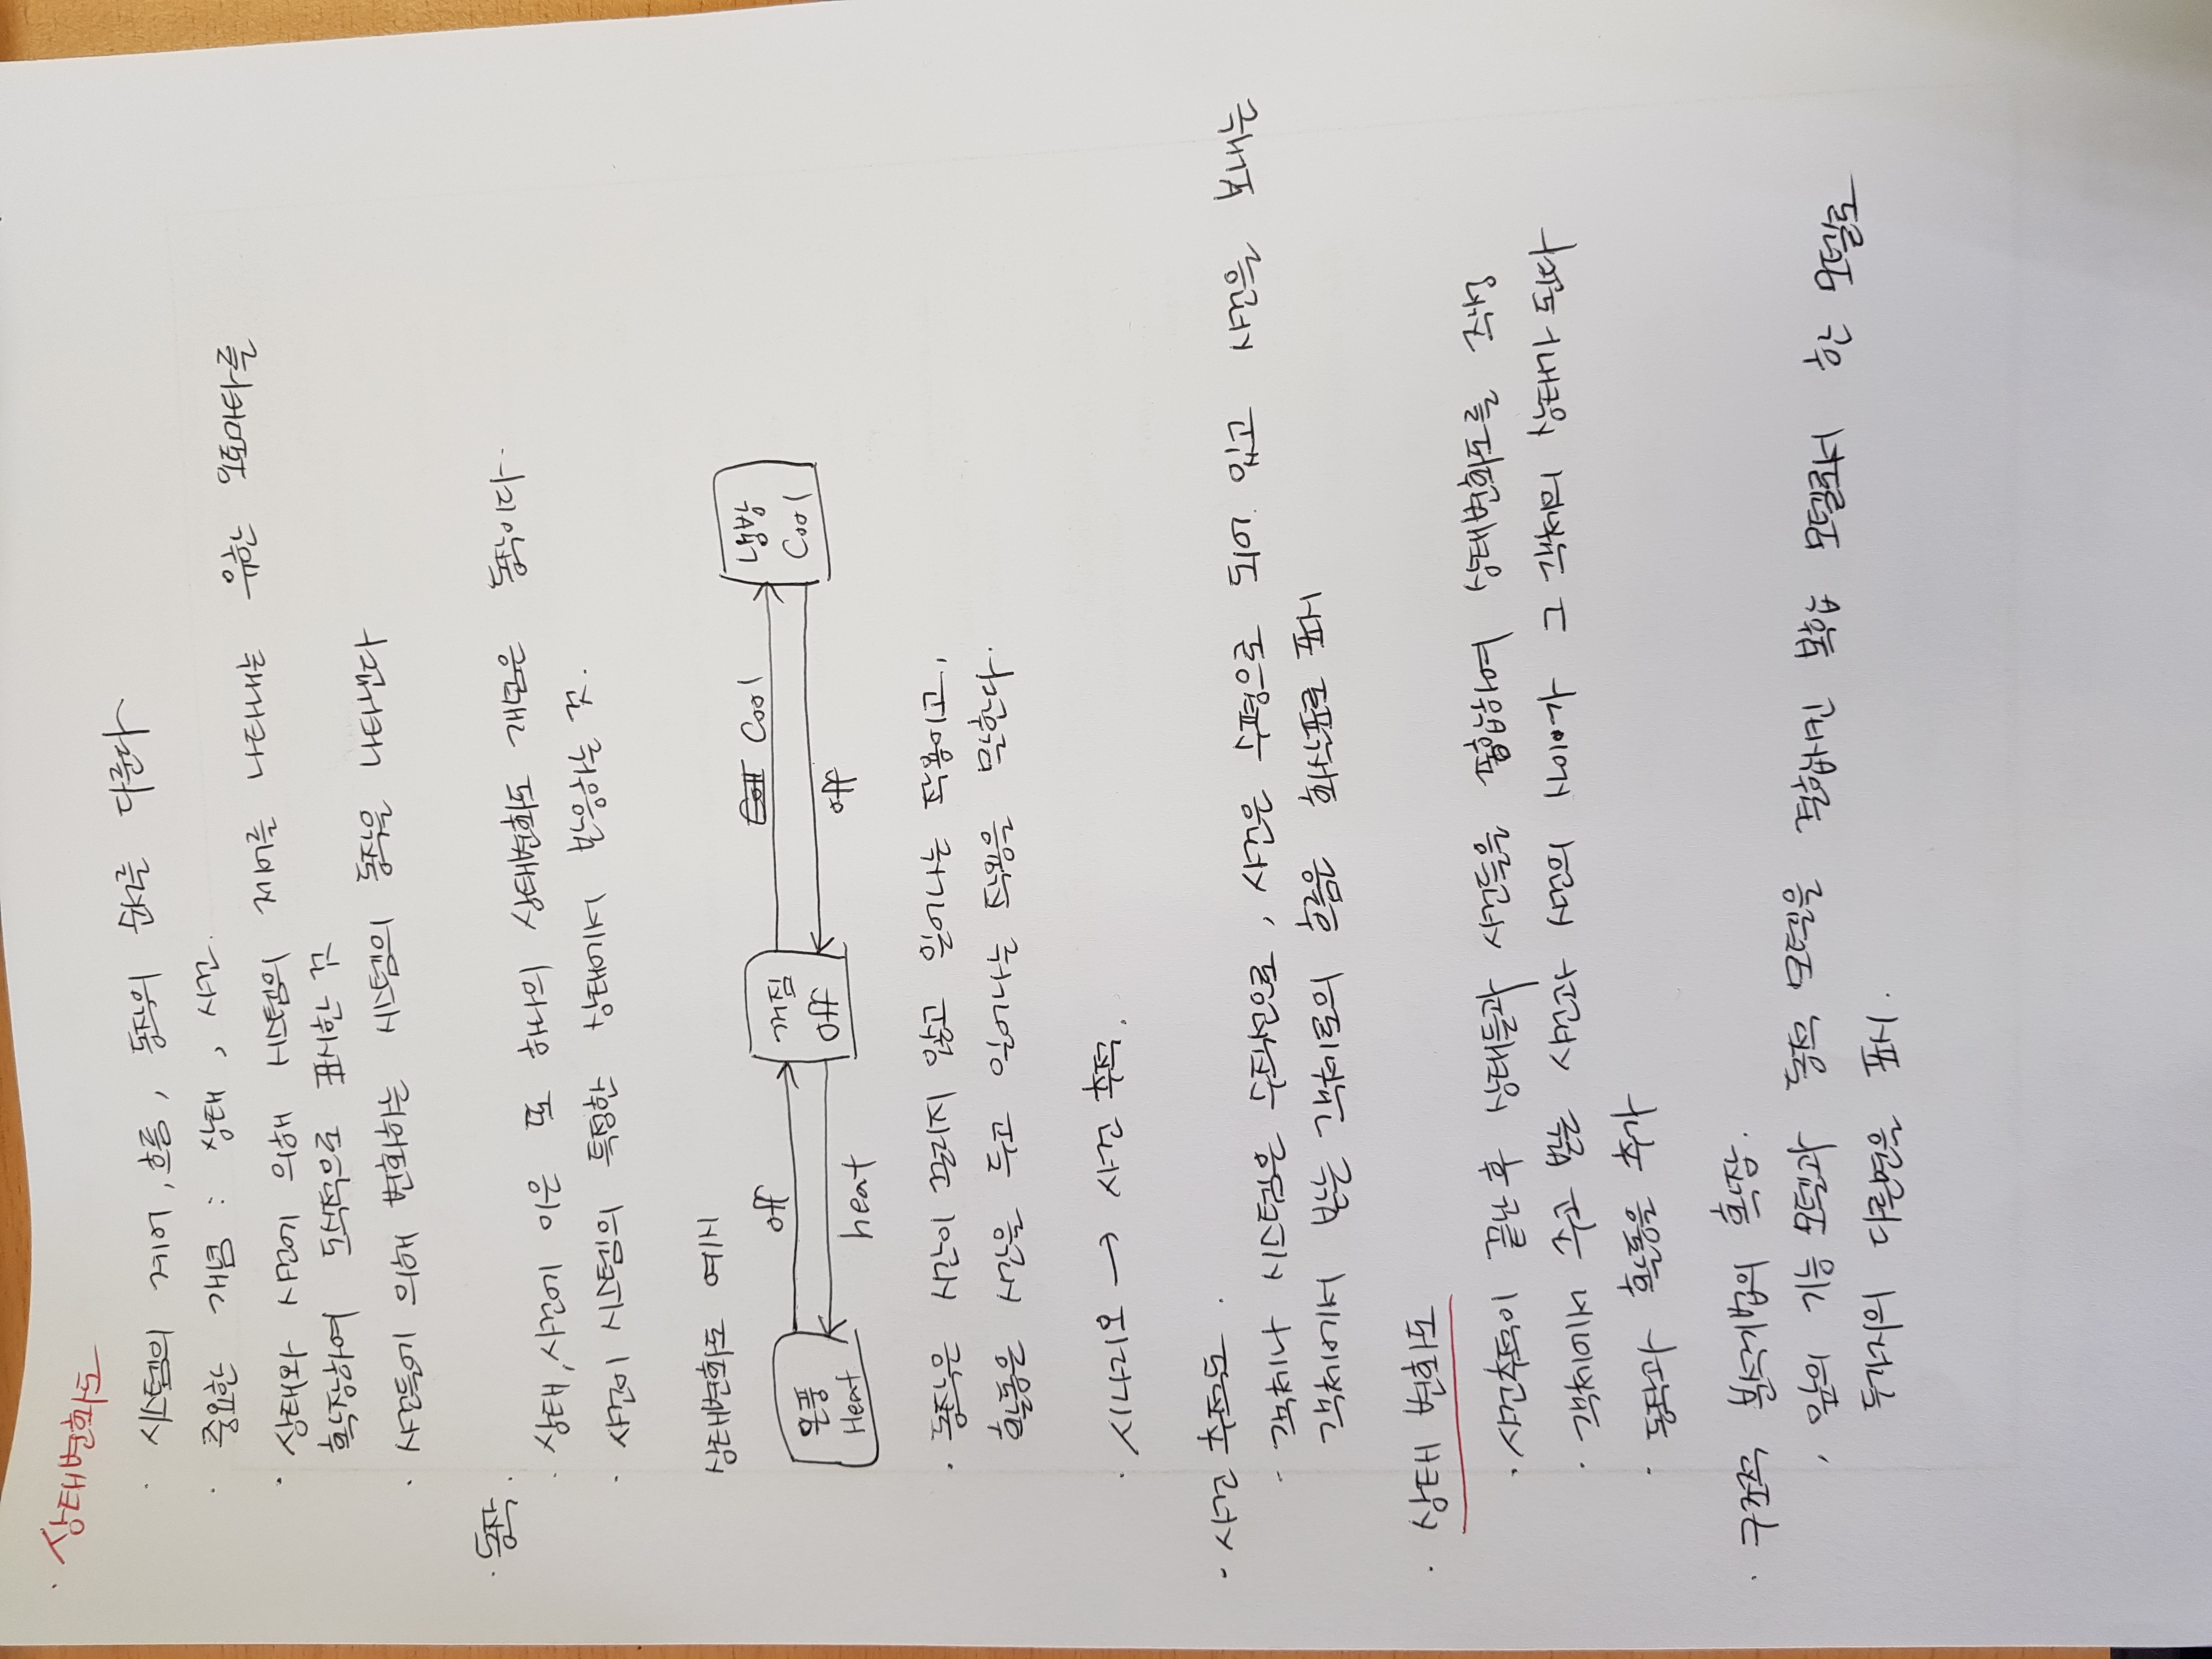 · 상태변화도
· 시스템의 제어, 흐름, 동작의 순서를 다룬다
· 중요한 개념 : 상태, 사건.
· 상태와 사건에 의해 시스템의 제어를 나타내는 유한 오토마타를
확장하여 도식적으로 표시한 것
· 사건들에 의해 변화하는 시스템의 동작을 나타낸다
· 동작.
· 상태, 사건에 이은 또 하나의 상태변화도 개념은 동작이다.
· 사건이 시스템의 특정한 상태에서 반응하는 것.
상태변화도 예시
off
Cool
온풍
Heat
꺼짐
Off
냉방
Cool
heat
off
· 동작은 시간이 끌리지 않고 일어나는 작용이고,
활동은 시간을 두고 일어나는 작용을 말한다.
· 시나리오 → 사건 추적.
· 사건 추적도.
- 객체나 시스템은 수직선으로, 사건은 수평으로 되어 있고 사건을 보내는
객체에서 받는 객체로의 흐름은 화살표로 표시
· 상태 변화도
· 사건추적이 끝난 후 상태들과 사건들을 통합하여 상태변화도를 작성
· 객체에서 주고 받는 사건과 사건의 사이가 그 객체의 상태가 된다
· 동작과 활동을 추가
· 구조적 분석기법의 확장.
· 앞의 기능 모델과 동적 모델을 결합시킨 복합 모델로서 한 모델로
두가지의 다른면을 표시.